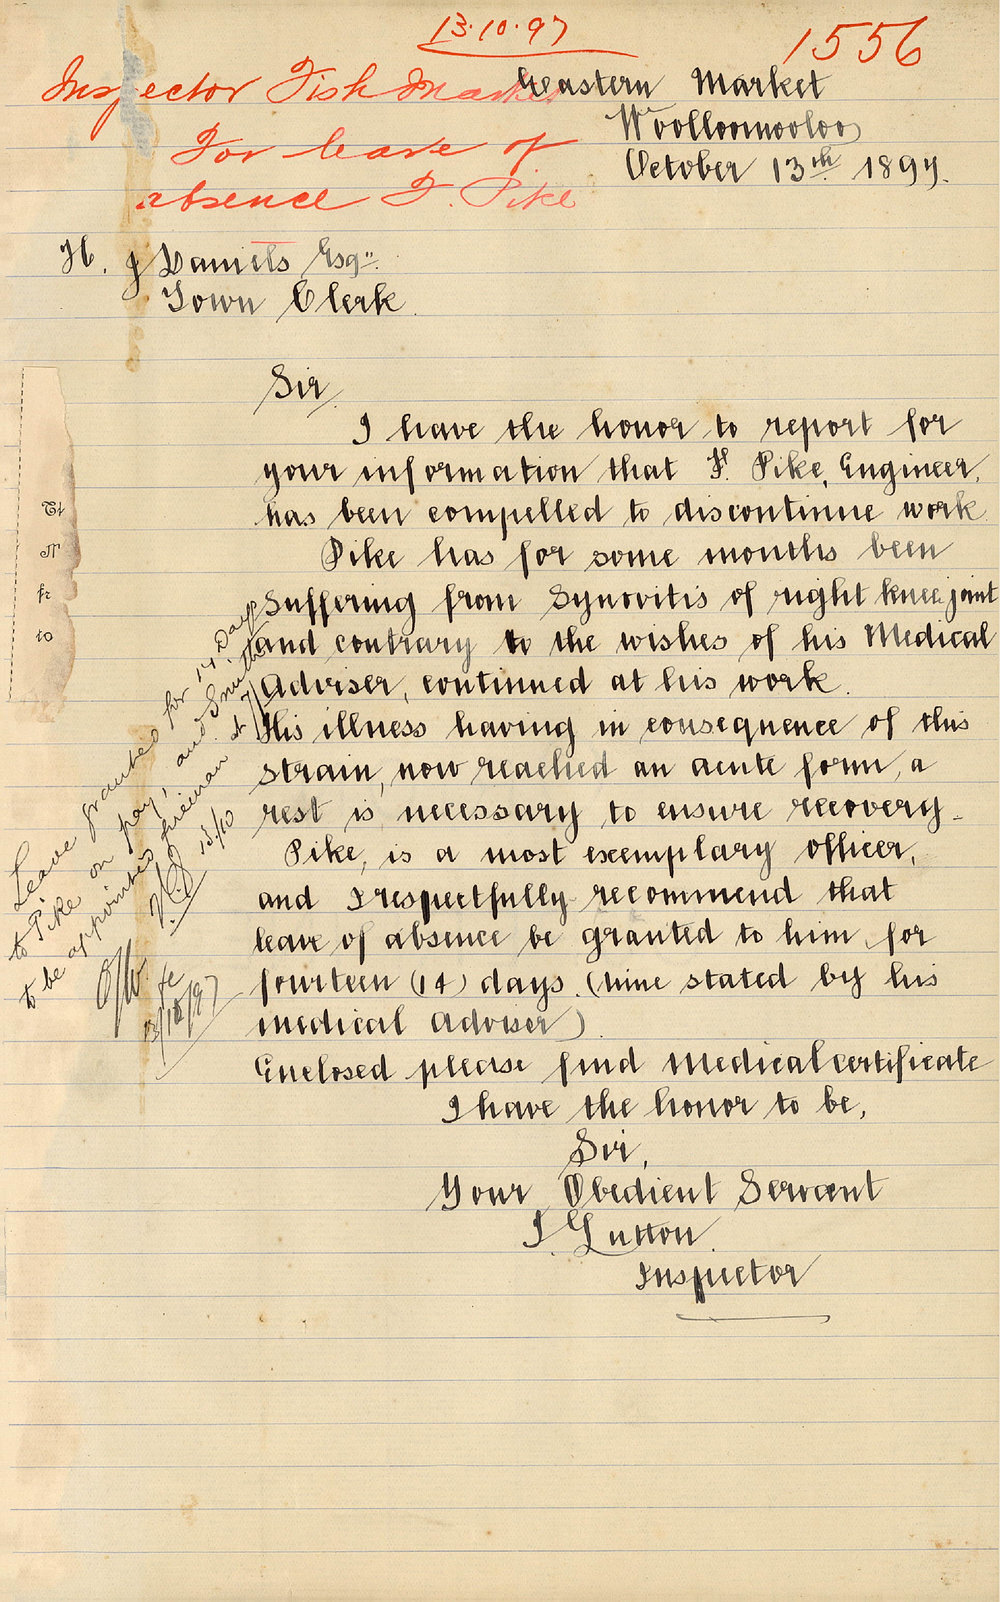 13.10.97
1556
Inspector Fish Market
For leave of
absence F. Pike
Eastern Market
Woolloomooloo
October 13th 1897.
H. J Daniels Esq".
Town Clerk.
Sir,
I have the honor to report for
your information that F. Pike, Engineer,
has been compelled to discontinue work.
Pike has for some months been
suffering from Synovitis of right knee joint
and contrary to the wishes of his Medical
Adviser, continued at his work.
His illness having in consequence of this
strain, now reached an acute form, a
rest is necessary to ensure recovery.
Pike, is a most exemplary officer,
and I respectfully recommend that
leave of absence be granted to him for
fourteen (14) days. (time stated by his
medical adviser)
Enclosed please find Medical certificate
I have the honor to be,
Sir,
Your Obedient Servant
Lutton
Inspector
Leave granted for 14 Days
to Pike on pay, and Smith
to be appointed fireman at 7/
13/10
13/10/97
to